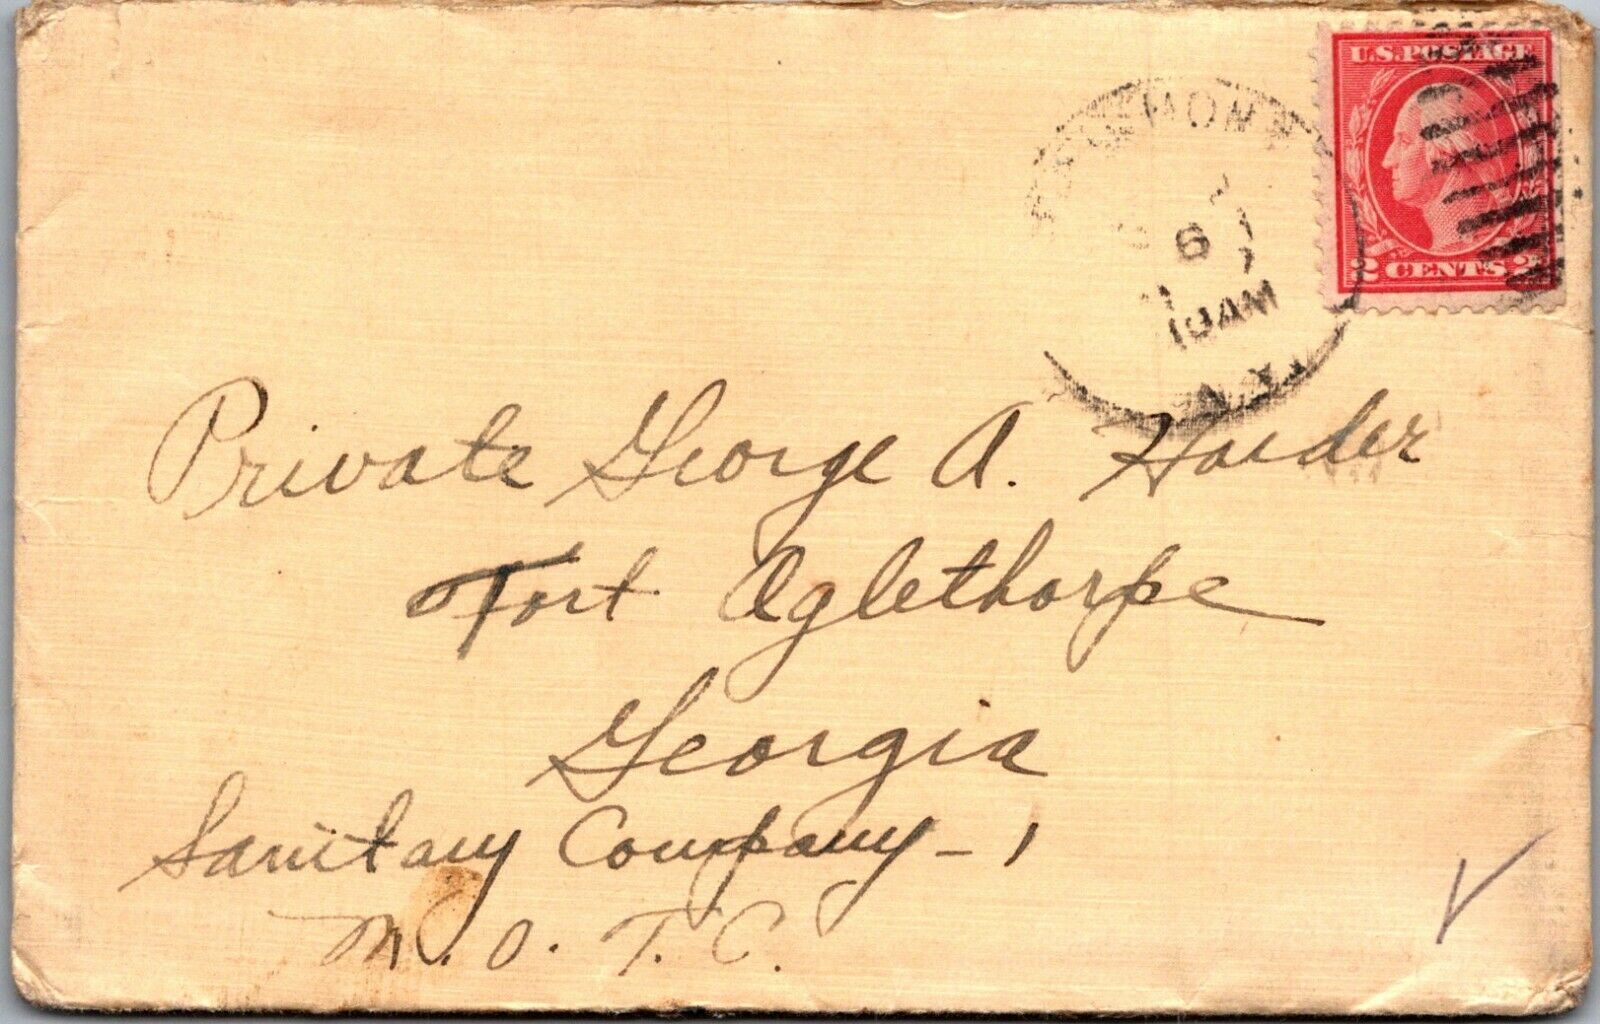 U.S. POSTAGE
2 CENTS 2
6
10 AM
N.Y.
Private George A. Harder
Fort Oglethorpe
Georgia
Sanitary Company - 1
M. O. T. C.